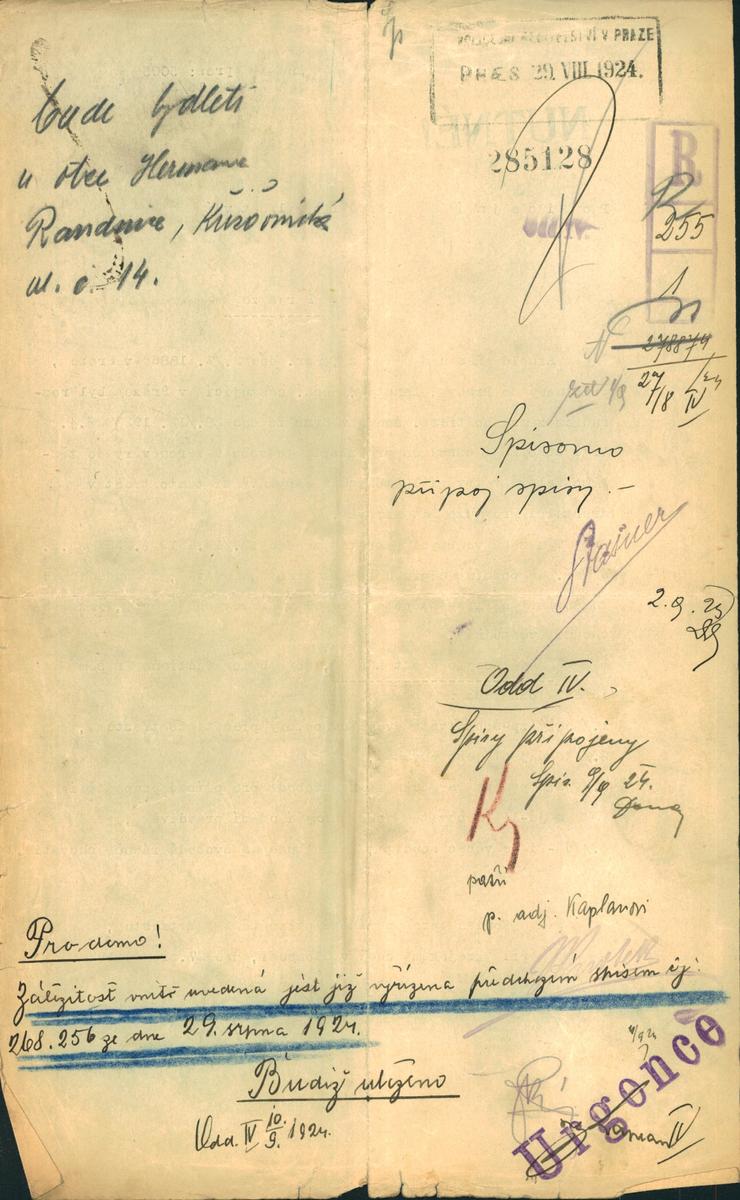 bude bydleti
u otce Hermana
Randnice, Křižovnická
ul. č. 14.
ŘEDITELSTVÍ V PRAZE
PRAES 29. VIII. 1924.
285128
R
255
N 278874
27/8 IV
Spisovno
připoj spisy. –
2.9.24
Odd IV.
Spisy připojeny
Spis. 9/9 24.
patří
p. adj. Kaplanovi
Pro domo!
Záležitost vnitř uvedená jest již vyřízena předchozím spisem čj.
268.256 ze dne 29. srpna 1924.
Budiž uloženo
Odd. IV 10./9. 1924.
Urgence